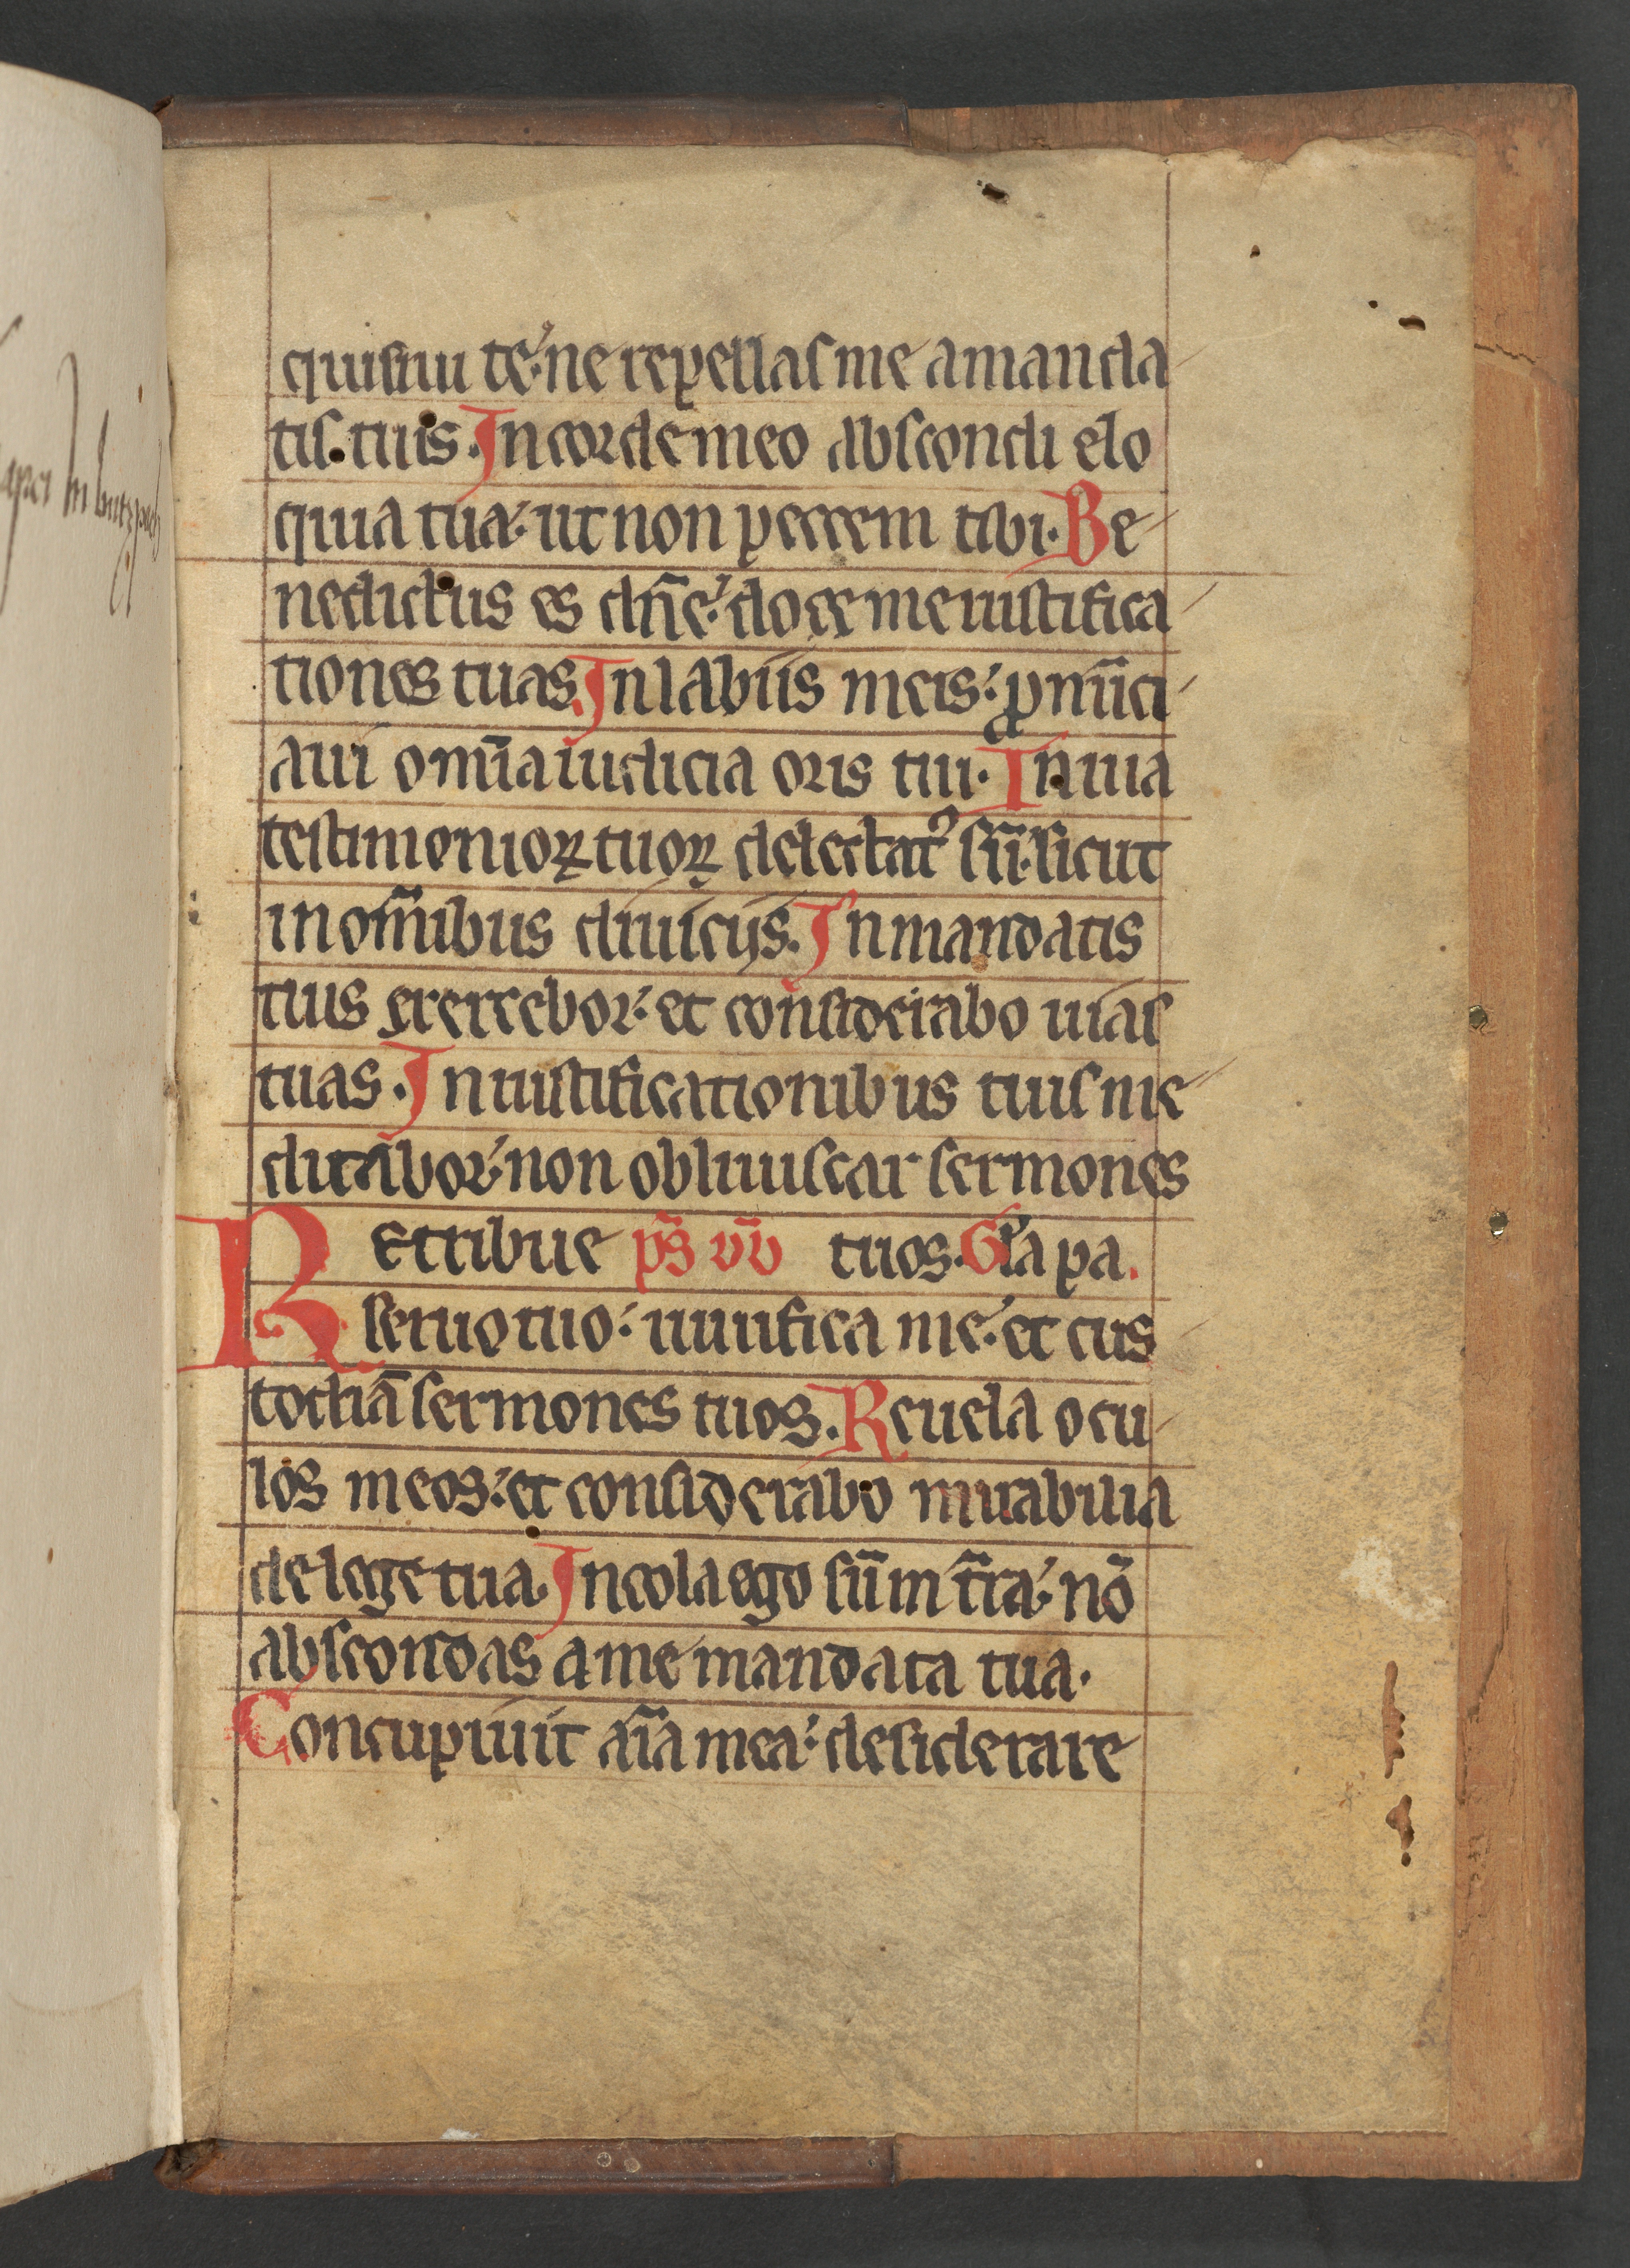 quisiui te: ne repellas me a manda
tis tuis. In corde meo abscondi elo
quia tua: ut non peccem tibi. Be
nedictus es dn̄e: doce me iustifica
tiones tuas. In labiis meis: ꝓnūci
aui om̄ia iudicia oris tui. In uia
testimonioꝝ tuoꝝ delectatꝰ sū: sicut
in om̄ibus diuicijs. In mandatis
tuis exercebor: et considerabo uias
tuas. In iustificationibus tuis me
ditabor: non obliuiscar sermones
Retribue ps̄ dd̄ tuos. Gl̄a pa.
seruo tuo: uiuifica me: et cus
todiā sermones tuos. Reuela ocu
los meos: et considerabo mirabilia
de lege tua. Incola ego sū in t̄ra: nō
abscondas a me mandata tua.
Concupiuit aīa mea: desiderare
in butzpach